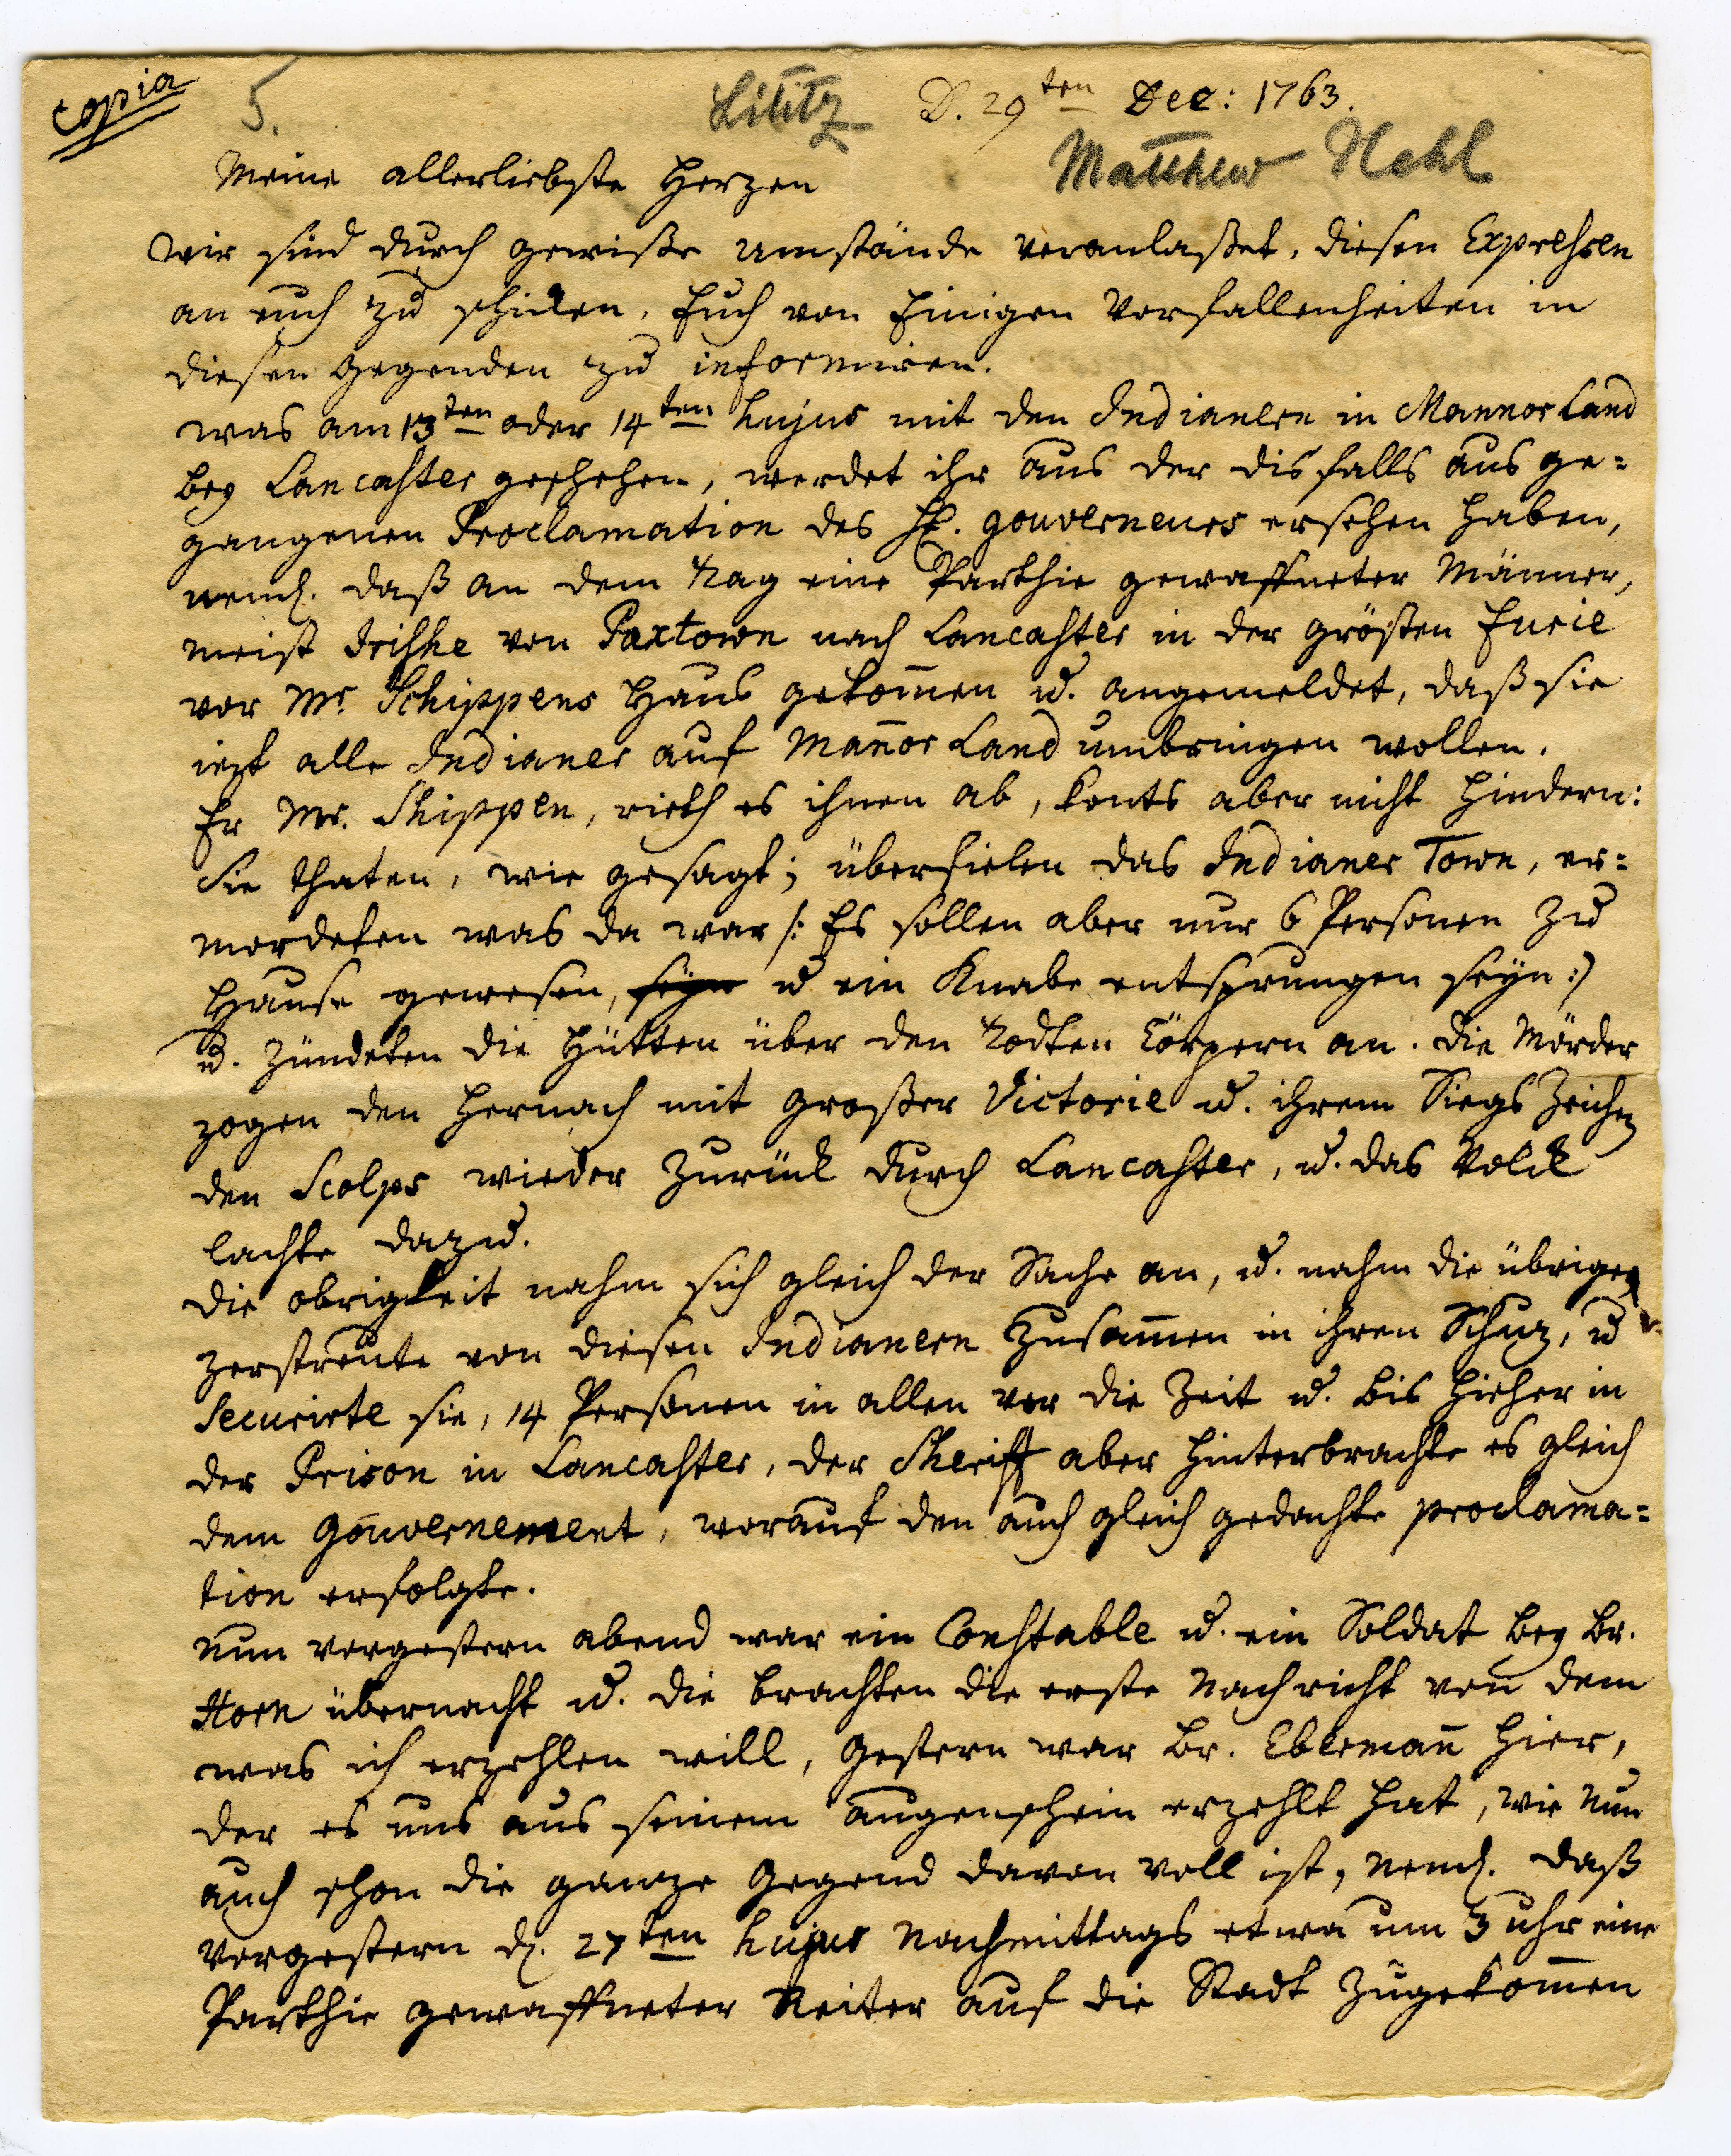 Copia
5.
Lititz D. 29ten Dec: 1763.
Matthew Hehl
Meine allerliebste Herzen
Wir sind durch gewiße Umstände veranlaßet, diesen Expressen
an euch zu schicken, Euch von Einigen Vorfallenheiten in
diesen Gegenden zu informiren.
was am 13ten oder 14ten hujus mit den Indianern in Mannor Land
bey Lancaster geschehen, werdet ihr aus der disfalls aus ge=
gangenen Proclamation des H. Gouverneurs ersehen haben,
neml. daß an dem Tag eine Parthie gewaffneter Männer,
meist Irishe von Paxtown nach Lancaster in der grösten Furie
vor Mr. Schippens Haus gekom̄en u. angemeldet, daß sie
iezt alle Indianer auf Man̄or Land umbringen wollen.
Er Mr. Shippen, rieth es ihnen ab, konts aber nicht hindern:
Sie thaten, wie gesagt; überfielen das Indianer Town, er=
mordeten was da war /: Es sollen aber nur 6 Personen zu
Hause gewesen, seyn u ein Knabe entsprungen seyn :/
u. zündeten die Hütten über den Todten Cörpern an. Die Mörder
zogen den hernach mit großer Victorie u. ihrem Siegs Zeichen
den Scolps wieder zurück durch Lancaster, u. das Volck
lachte dazu.
Die Obrigkeit nahm sich gleich der Sache an, u. nahm die übrigen
zerstreute von diesen Indianern zusam̄en in ihren Schuz, u
securirte sie, 14 Personen in allen vor die Zeit u. bis hieher in
der Prison in Lancaster, der Sheriff aber hinterbrachte es gleich
dem Gouvernement, worauf den auch gleich gedachte proclama=
tion erfolgte.
Nun vorgestern abend war ein Constable u. ein Soldat bey Br.
Horn übernacht u. die brachten die erste Nachricht von dem
was ich erzehlen will, Gestern war Br. Eberman̄ hier,
der es uns aus seinem Augenschein erzehlt hat, wie nun
auch schon die ganze Gegend davon voll ist, neml. daß
vorgestern d. 27ten hujus Nachmittags etwa um 3 uhr eine
Parthie gewaffneter Reiter auf die Stadt zugekom̄en